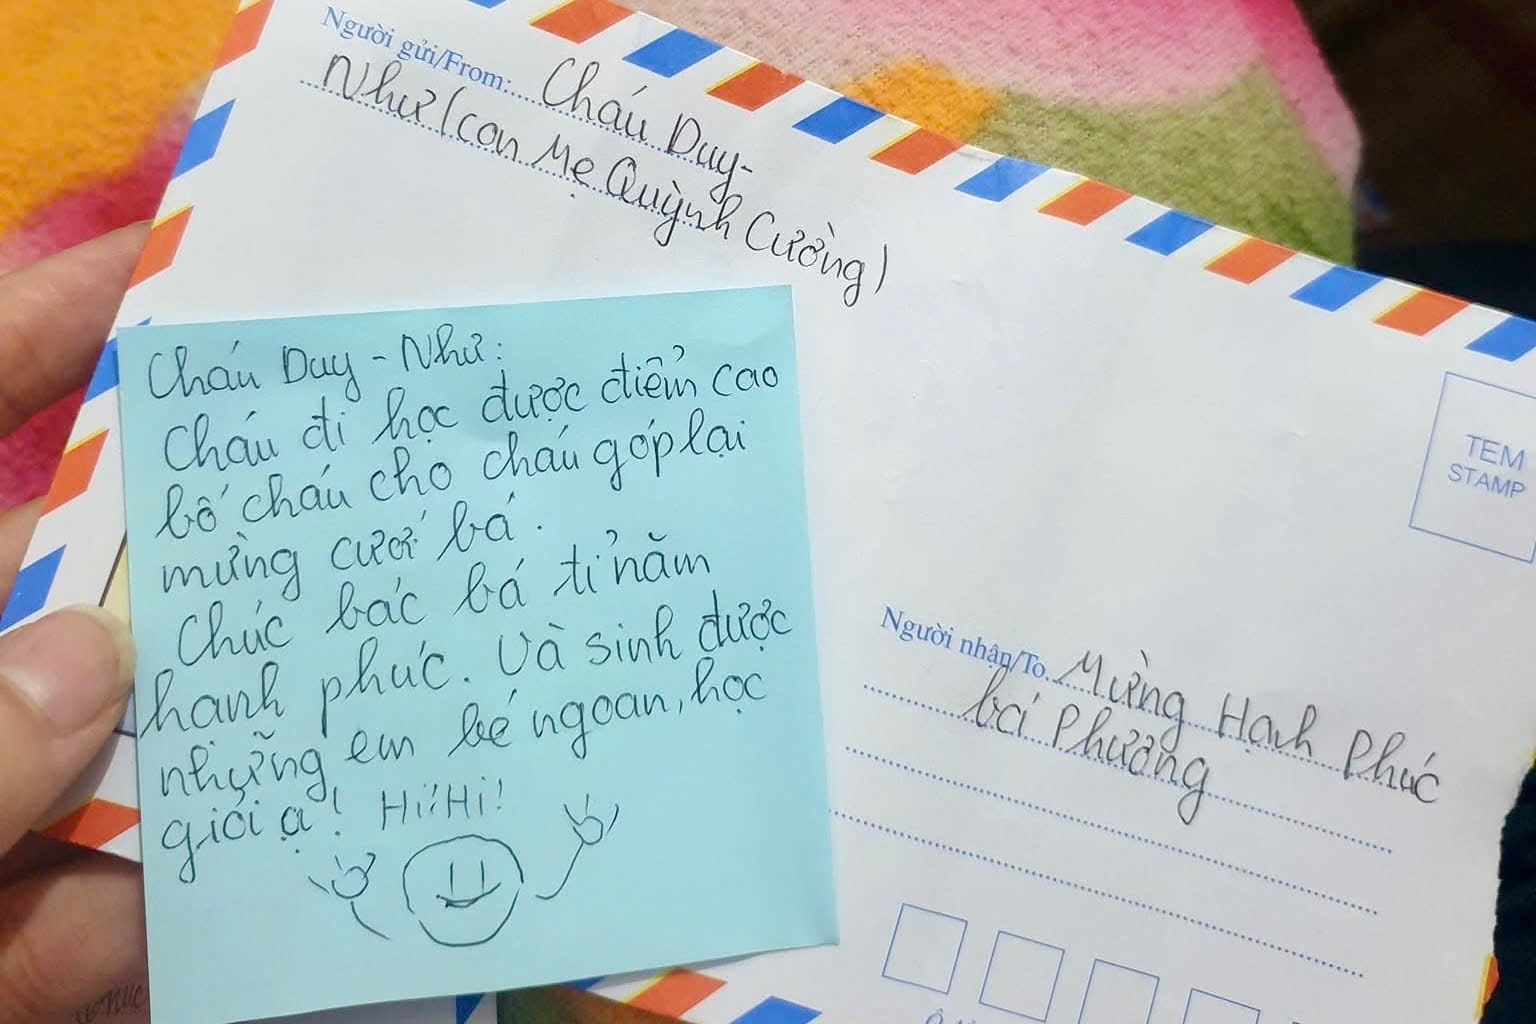 Người gửi/From: Cháu Duy-
Như (con Mẹ Quỳnh Cường)
Cháu Duy - Như:
Cháu đi học được điểm cao
bố cháu cho cháu góp lại
mừng cưới bá.
Chúc bác bá tỉ năm
hạnh phúc. Và sinh được
những em bé ngoan, học
giỏi ạ! Hi!Hi!
TEM
STAMP
Người nhận/To Mừng Hạnh Phúc
bá Phương